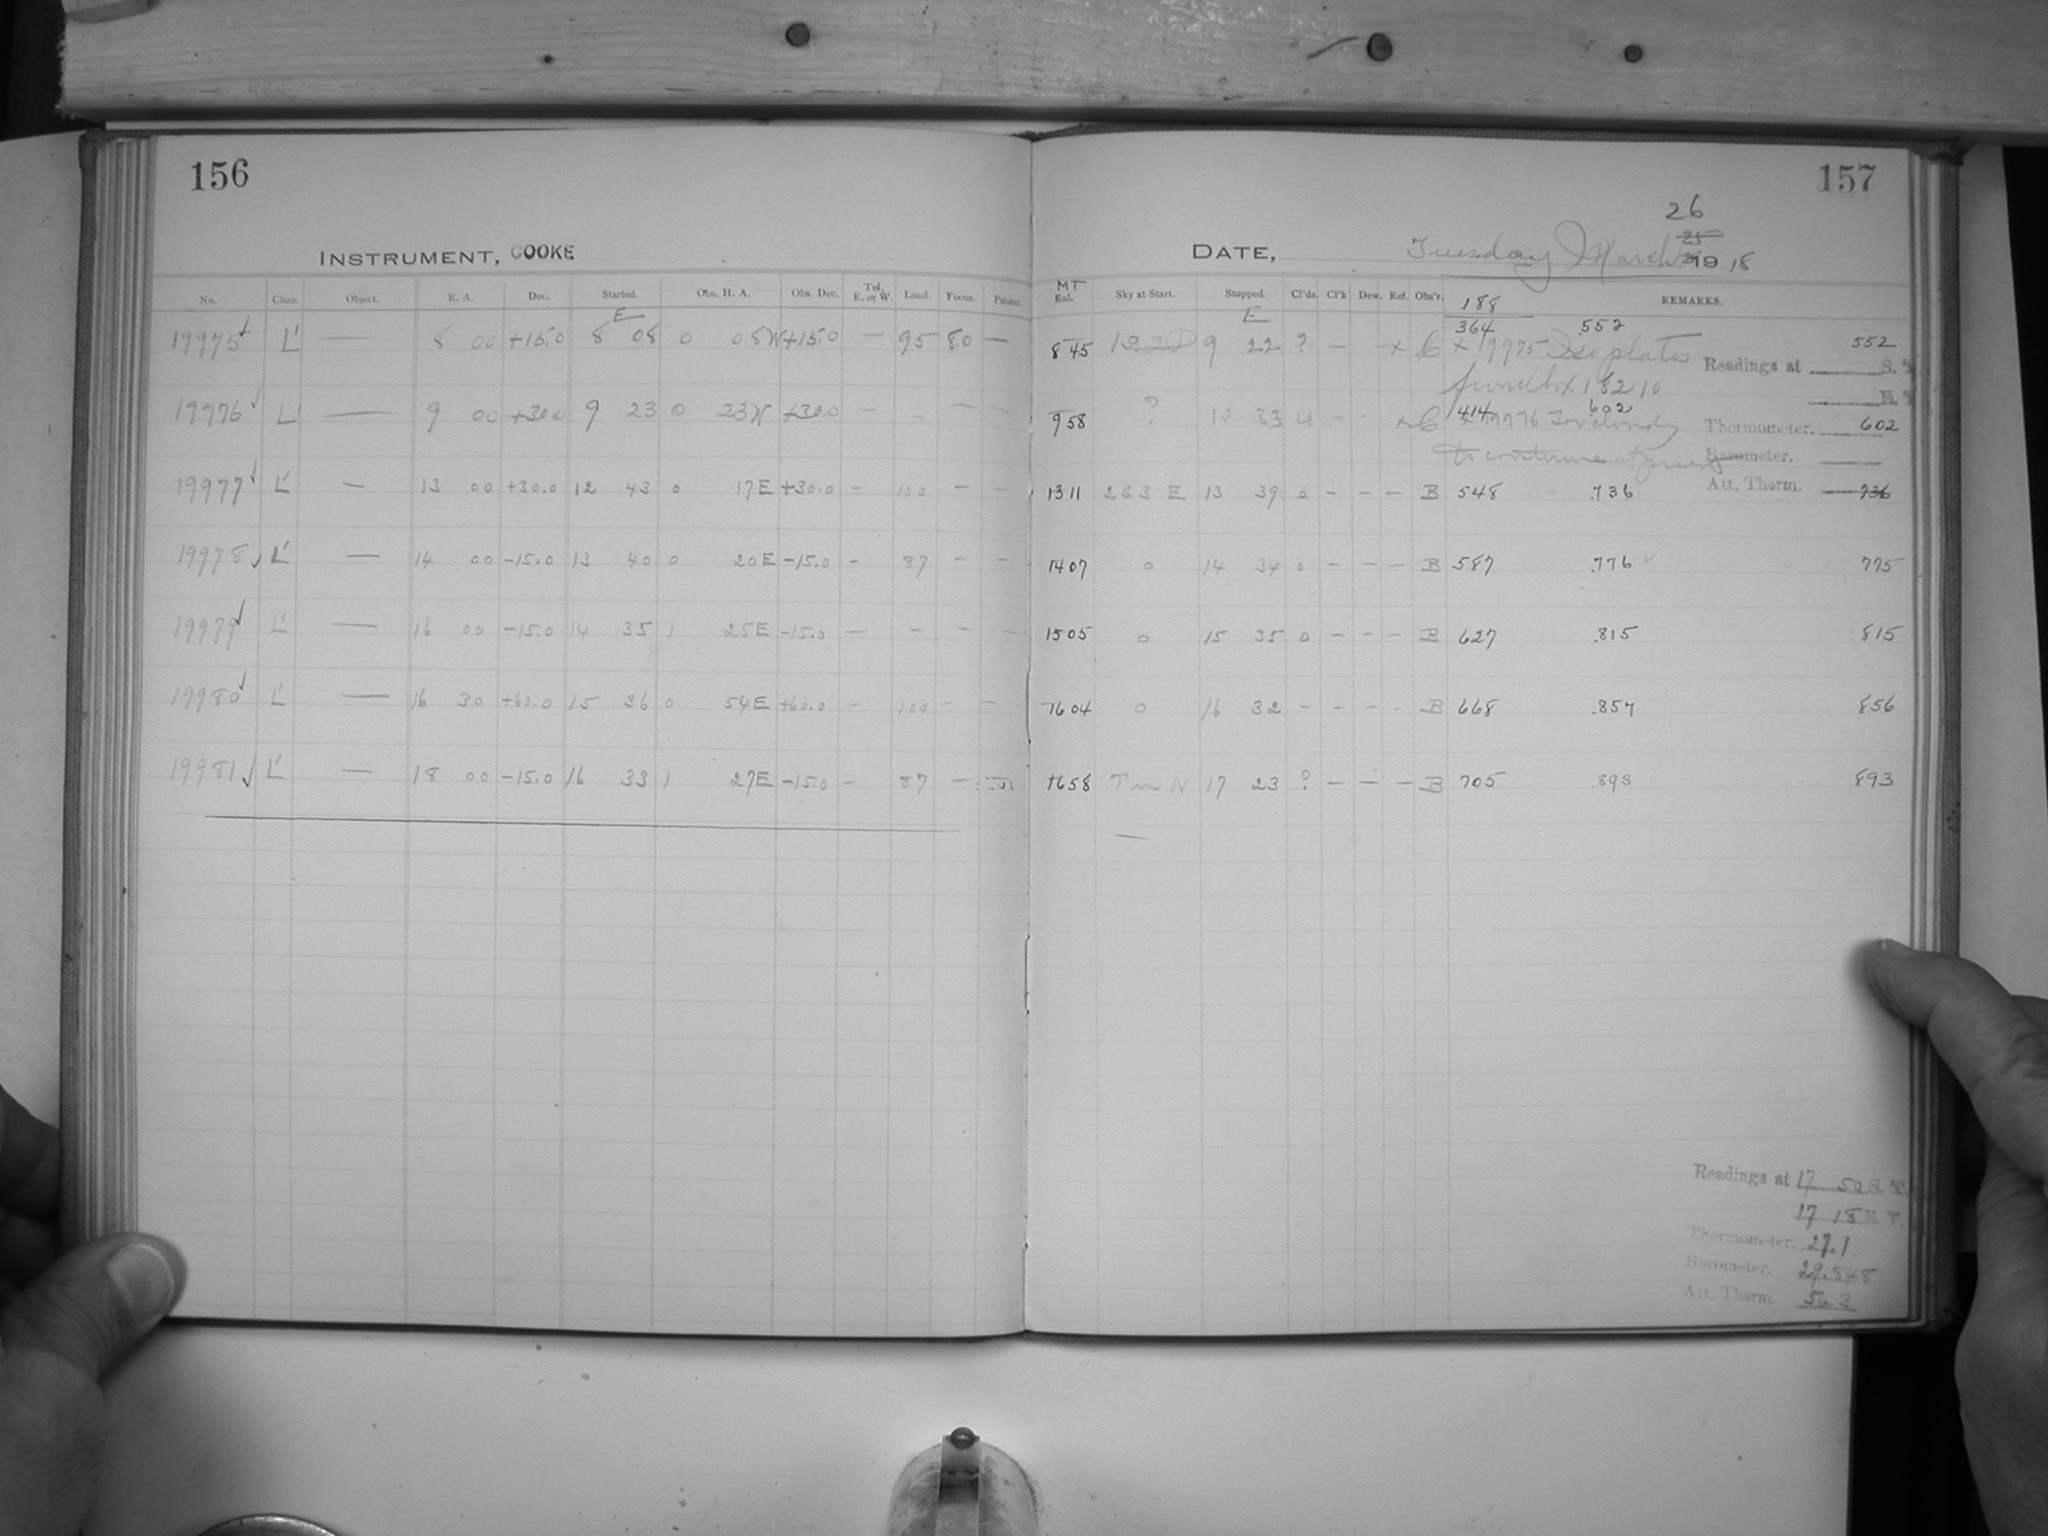 156
INSTRUMENT, COOKE
No. Class. Object. R. A. Dec. Started. Obs. H. A. Obs. Dec. Tel. E. or W. Load. Focus.
E
19975 L' — 8 00 +15.0 8 08 0 08W +15.0 — 95 80 —
19976 L' — 9 00 +30.0 9 23 0 23W +30.0 - — —
19977 L' — 13 00 +30.0 12 43 0 17E +30.0 - 100 - -
19978 L' — 14 00 -15.0 13 40 0 20E -15.0 - 87 - -
19979 L' — 16 00 -15.0 14 35 1 25E -15.0 — - - -
19980 L' — 16 30 +60.0 15 36 0 54E +60.0 - 100 - -
19981 L' — 18 00 -15.0 16 33 1 27E -15.0 - 87 -
157
26
25
DATE, Tuesday March 1918
MT
Eql. Sky at Start. Stopped. Cl'ds. Cl'k Dew. Ref. Obs'r. 188 REMARKS.
E
364 552
845 9 22 ? - - x C x 19975 plates 552
Readings at S. T.
from box 18210
414 602
958 ? 10 33 - - x C x 19976 Too cloudy
Thermometer. 602
to continue at present
Barometer.
Att. Therm. 736
1311 253 E 13 39 0 - - - B 548 .736
1407 0 14 34 0 - - - B 587 .776 775
1505 0 15 35 0 - - - B 627 .815 815
1604 0 16 32 - - - - B 668 .857 856
1658 N 17 23 ? - - - B 705 .893 893
Readings at 17 50 S. T.
17 18 E. T.
Thermometer. 27.1
Barometer. 29.848
Att. Therm. 56.3